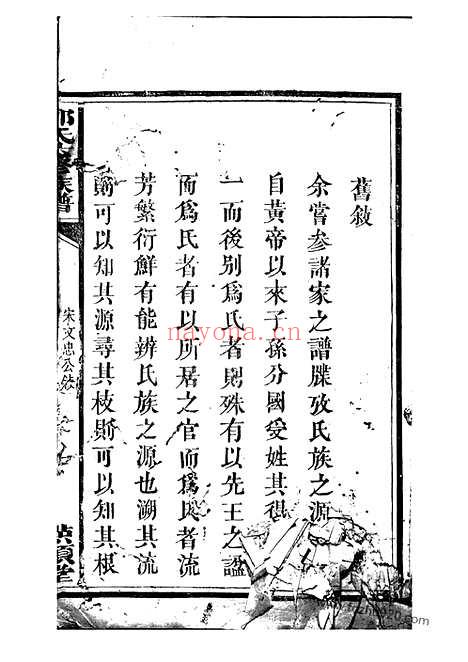 舊敘
余嘗參諸家之譜牒攷氏族之源
自黃帝以來子孫分國受姓其得
一而後別爲氏者則殊有以先王之謚
而爲氏者有以所居之官而爲氏者流
芳繁衍鮮有能辨氏族之源也溯其流
則可以知其源尋其枝則可以知其根
氏
族譜
宋文忠公敘
堂
nayona.cn